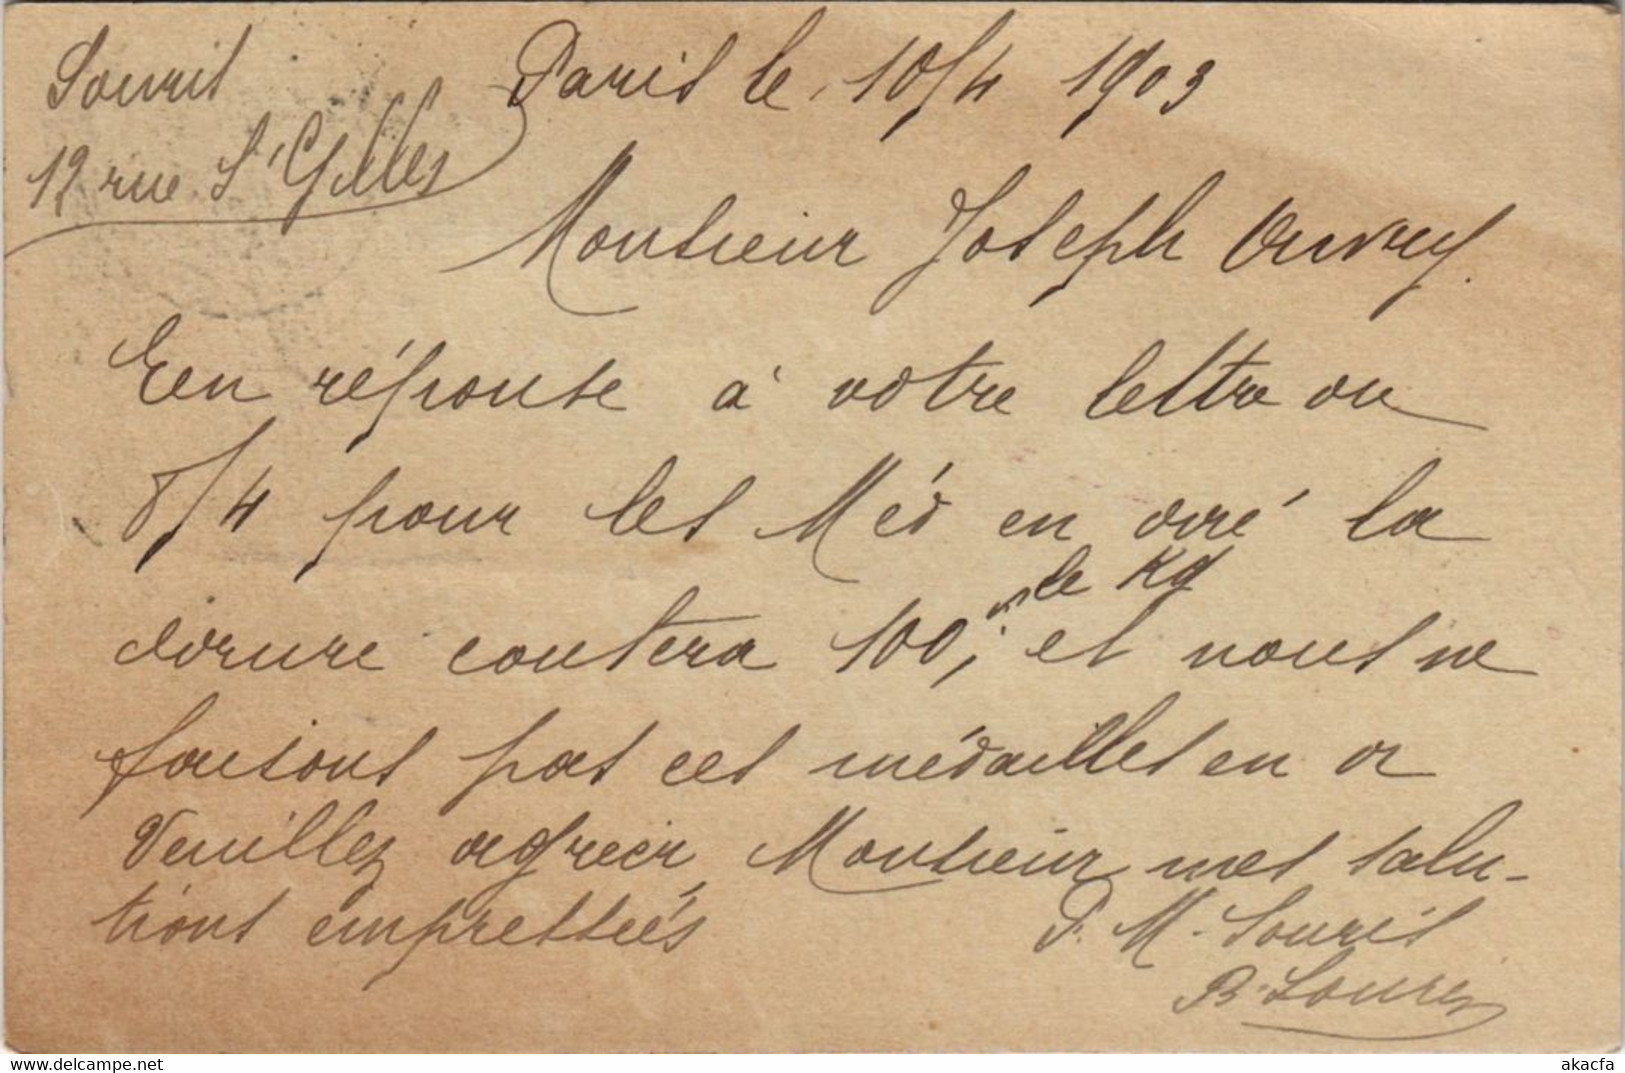 Souris
12 rue St Gilles
Paris le 10/4 1903
Monsieur Joseph Ouvry.
En réponse à votre lettre du
8/4 pour les Méd en doré la
dorure coutera 100, le Kg et nous ne
faisons pas ces médailles en or
Veuillez agréer, Monsieur mes salu-
tions empressées
P. M. Souris
B. Souris
akacfa